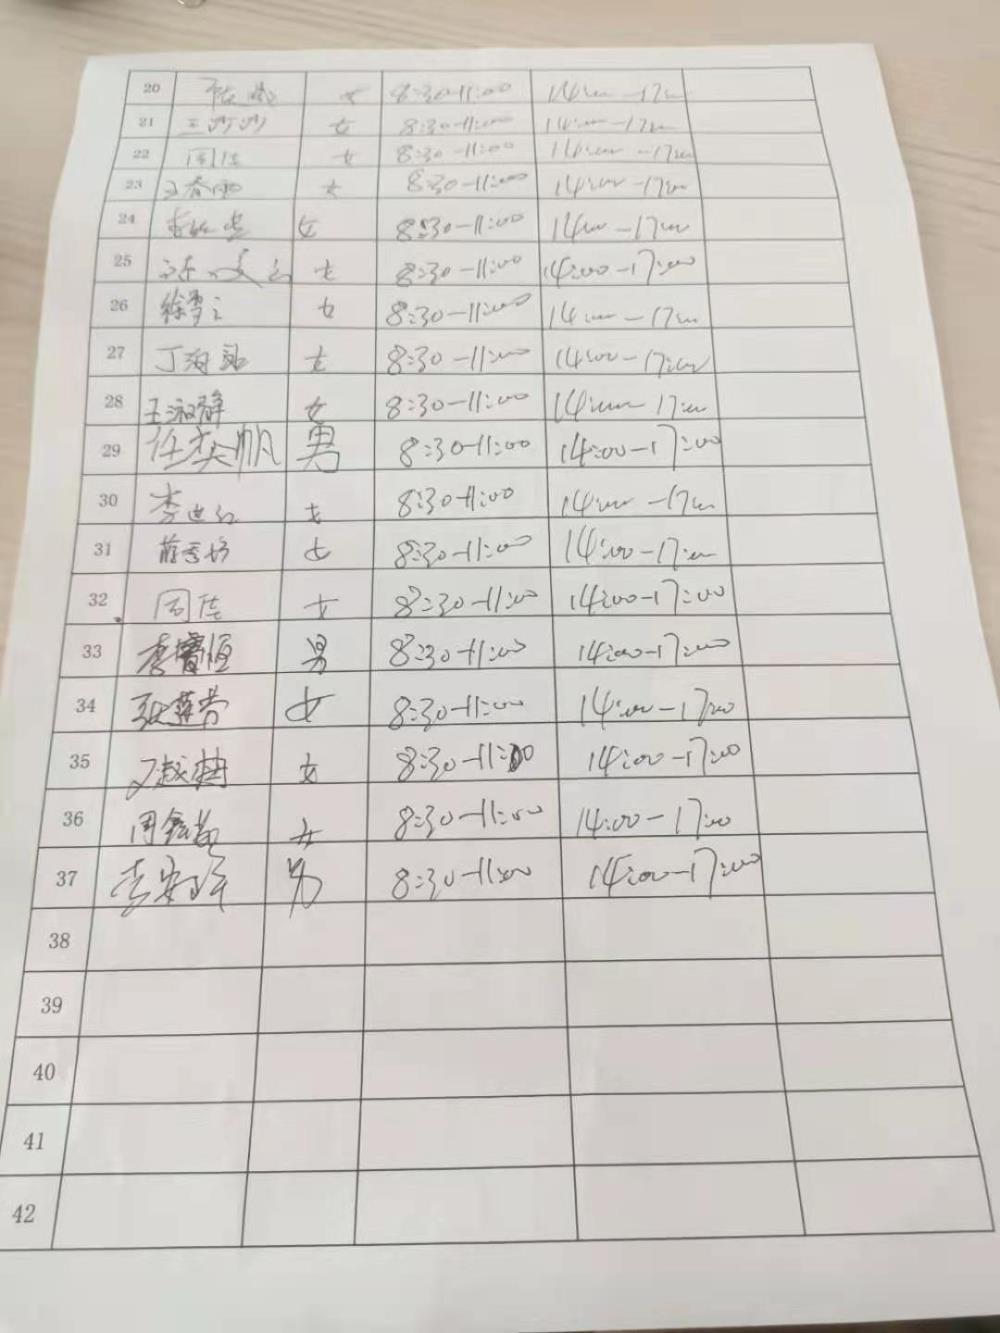 20 女 8:30-11:00 14:00-17:00
21 王沙沙 女 8:30-11:00 14:00-17:00
22 周佳 女 8:30-11:00 14:00-17:00
23 王春雨 女 8:30-11:00 14:00-17:00
24 女 8:30-11:00 14:00-17:00
25 女 8:30-11:00 14:00-17:00
26 女 8:30-11:00 14:00-17:00
27 女 8:30-11:00 14:00-17:00
28 王淑静 女 8:30-11:00 14:00-17:00
29 任奕帆 男 8:30-11:00 14:00-17:00
30 女 8:30-11:00 14:00-17:00
31 女 8:30-11:00 14:00-17:00
32 周佳 女 8:30-11:00 14:00-17:00
33 李睿恒 男 8:30-11:00 14:00-17:00
34 女 8:30-11:00 14:00-17:00
35 女 8:30-11:00 14:00-17:00
36 女 8:30-11:00 14:00-17:00
37 男 8:30-11:00 14:00-17:00
38
39
40
41
42